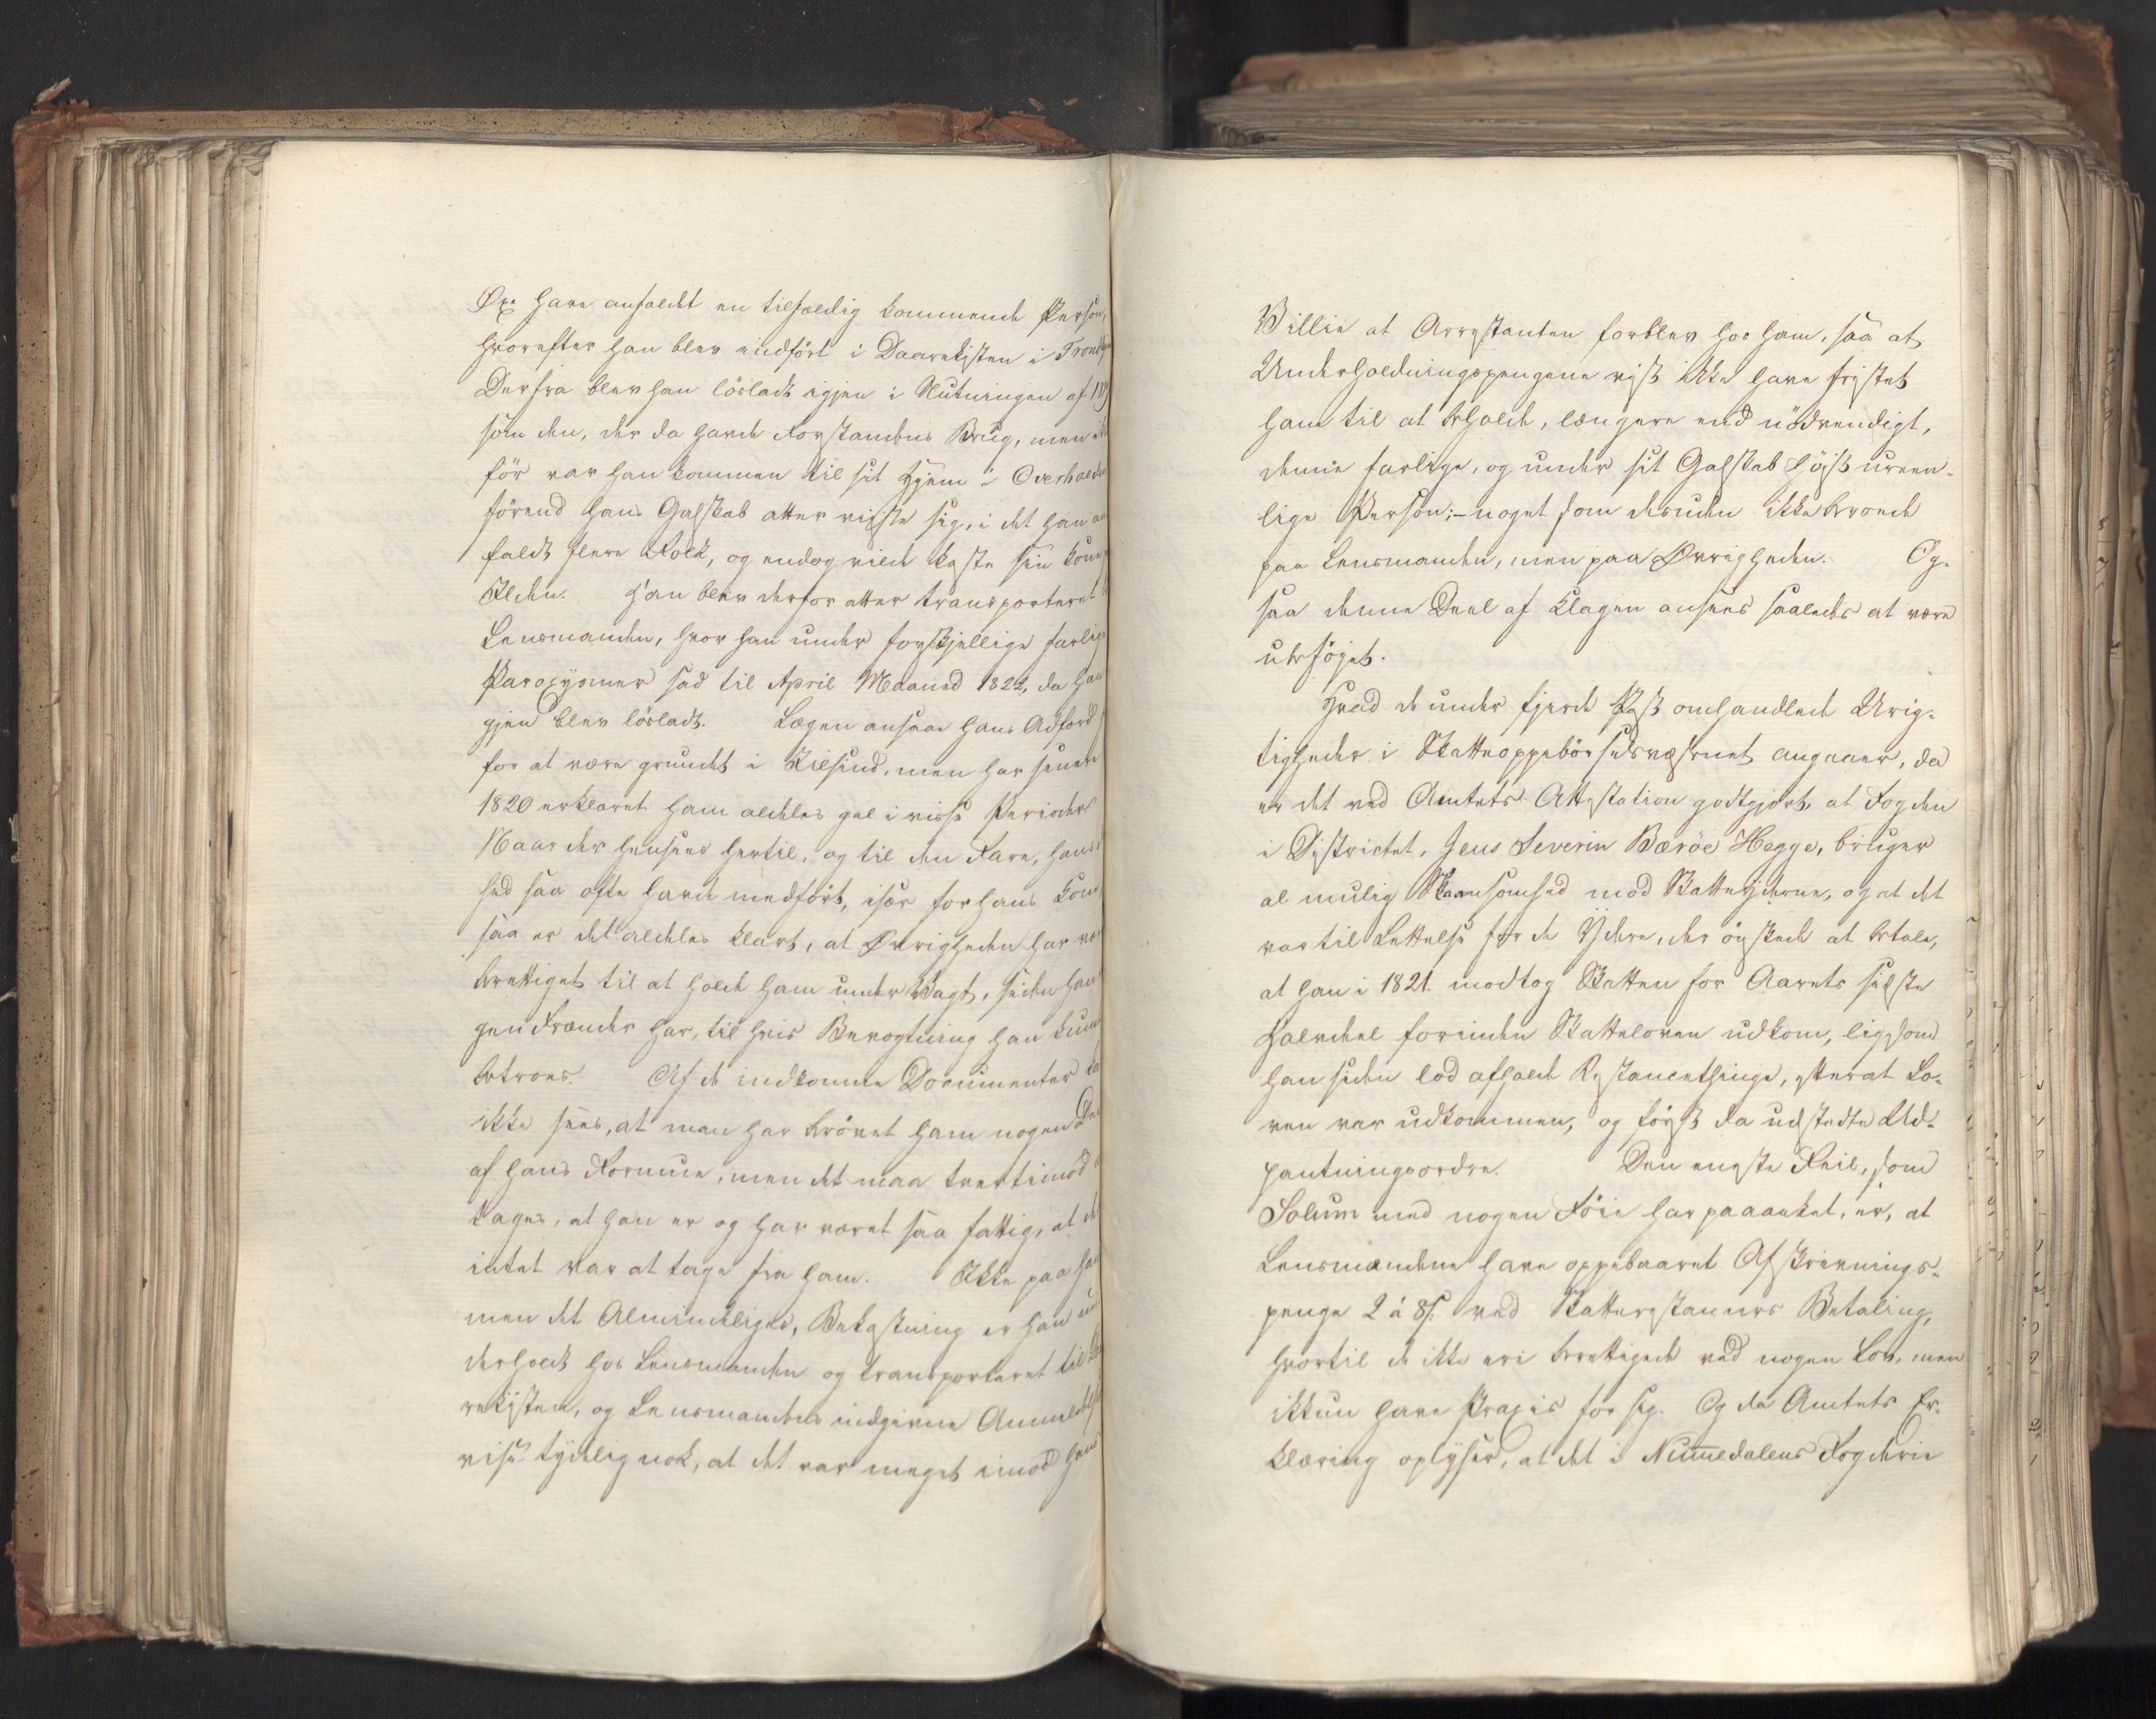 Öxe have anfaldt en tilfældig kommende Person,
hvorefter han blev indfört i Daarekisten i Trond
Derfra blev han lösladt igjen i Slutningen af 18
som den, der da havde Forstandens Brug, men
för var han kommen til sit Hjem i Overhald
förend hans Galskab atter viiste sig, i det han
faldt flere Folk, og endog vilde kaste sin Kone
Ilden. Han blev derfor atter transporteret
Lensmanden, hvor han under forskjellige farlige
Paroxysmer sad til April Maaned 1822, da han
gjen blev lösladt. Lægen ansaae hans Adfærd
for at være grundet i Tilsind, men har senere
1820 erklæret ham aldeles gal i visse Perioder.
Naar der hensees hertil, og til den Fare, hans
hed saa ofte havde medfört, især for hans Kone
saa er det aldeles klart, at Övrigheden har
berettiget til at holde ham under Vagt, siden han
gen Frænder har, til hvis Bevogtning han kunde
betroes. Af de indkomne Documenter
ikke sees, at man har berövet ham nogen Deel
af hans Formue, men det maa tvertimod
tages, at han er og har været saa fattig, at
intet var at tage fra ham. Ikke paa
men det Almindeliges, Bekostning er han
derholdt hos Lensmanden og transporteret til
rekisten, og Lensmandens indgivne Anmeldelse
vise tydelig nok, at det var meget imod hans
Villie at Arrestanten forblev hos ham, saa at
Underholdningspengene vist ikke have fristet
ham til at beholde, længere end nödvendigt,
denne farlige, og under sit Galskab höist ureen-
lige Person; – noget som desuden ikke beroede
paa Lensmanden, men paa Övrigheden. Og-
saa denne Deel af Klagen ansees saaledes at være
ubeföiet.
Hvad de under fjerde Post omhandlede Urig-
tigheder i Skatteoppebörselsvæsenet angaaer, da
er det ved Amtets Attestation godtgjort, at Fogden
i Districtet, Jens Severin Baröe Hegge, bruger
al mulig Skaansomhed mod Skatteyderne, og at det
var til Lettelse for de Ydere, der önskede at betale,
at han i 1821. modtog Skatten for Aarets sidste
Halvdeel forinden Skatteloven udkom, ligesom
han siden lod afholde Restancethinge, efterat Lo-
ven var udkommen, og först da udstedte Ud-
pantningsordre. Den eneste Feil, som
Solum med nogen Föie har paaanket, er, at
Lensmændene have oppebaaret Afskrivnings-
penge 2 à 8 s. ved Skatterestancers Betaling,
hvortil de ikke ere berettigede ved nogen Lov, men
ikkun have Praxis for sig. Og da Amtets Er-
klæring oplyser, at det i Nummedalens Fogderie